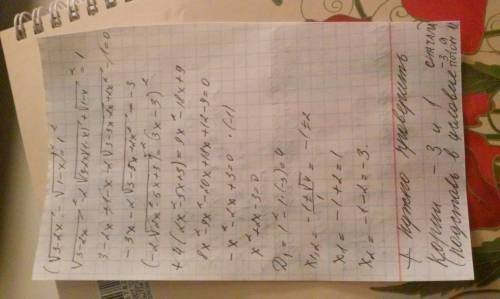 (√(3-2x) - √(1-x))² = 1²
√(3-2x)² - 2√((3-2x)(1-x)) + √(1-x)² = 1
3-2x+1-x-2√(3-3x-2x+2x²) -1=0
-3x-2√(3-5x+2x²) = -3
(-2√(2x²-5x+3))² = (3x-3)²
+4(2x²-5x+3) = 9x²-18x+9
8x²-9x²-20x+18x+12-9=0
-x²-2x+3=0 ·(-1)
x²+2x-3=0
D₁=1²-1·(-3)=4
x₁,₂ = (-1±√4)/1 = -1±2
x₁ = -1+2=1
x₂ = -1-2=-3.
+ нужно проверить
Корни -3 и 1
(подставь в условие сначала
-3, а
потом 1